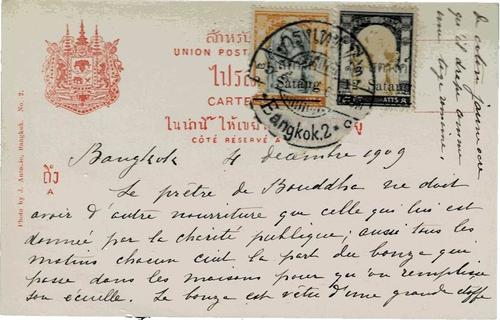 สำหรับ
UNION POST
ไปรษ
CARTE
ในด้านนี้ ให้เขีย
CÔTÉ RÉSERVÉ A
ถึง
A
Photo by J. Antonio, Bangkok. No. 2.
Satang
Satang
ATTS
Bangkok.2
de coton jaune
qu'il drape comme
une toge romaine.
Bangkok 4 décembre 1909
Le prêtre de Bouddha ne doit
avoir d'autre nourriture que celle qui lui est
donnée par la charité publique; aussi tous les
matins chacun cuit la part du bonze qui
passe dans les maisons pour qu'on remplisse
son écuelle. Le bonze est vêtu d'une grande étoffe